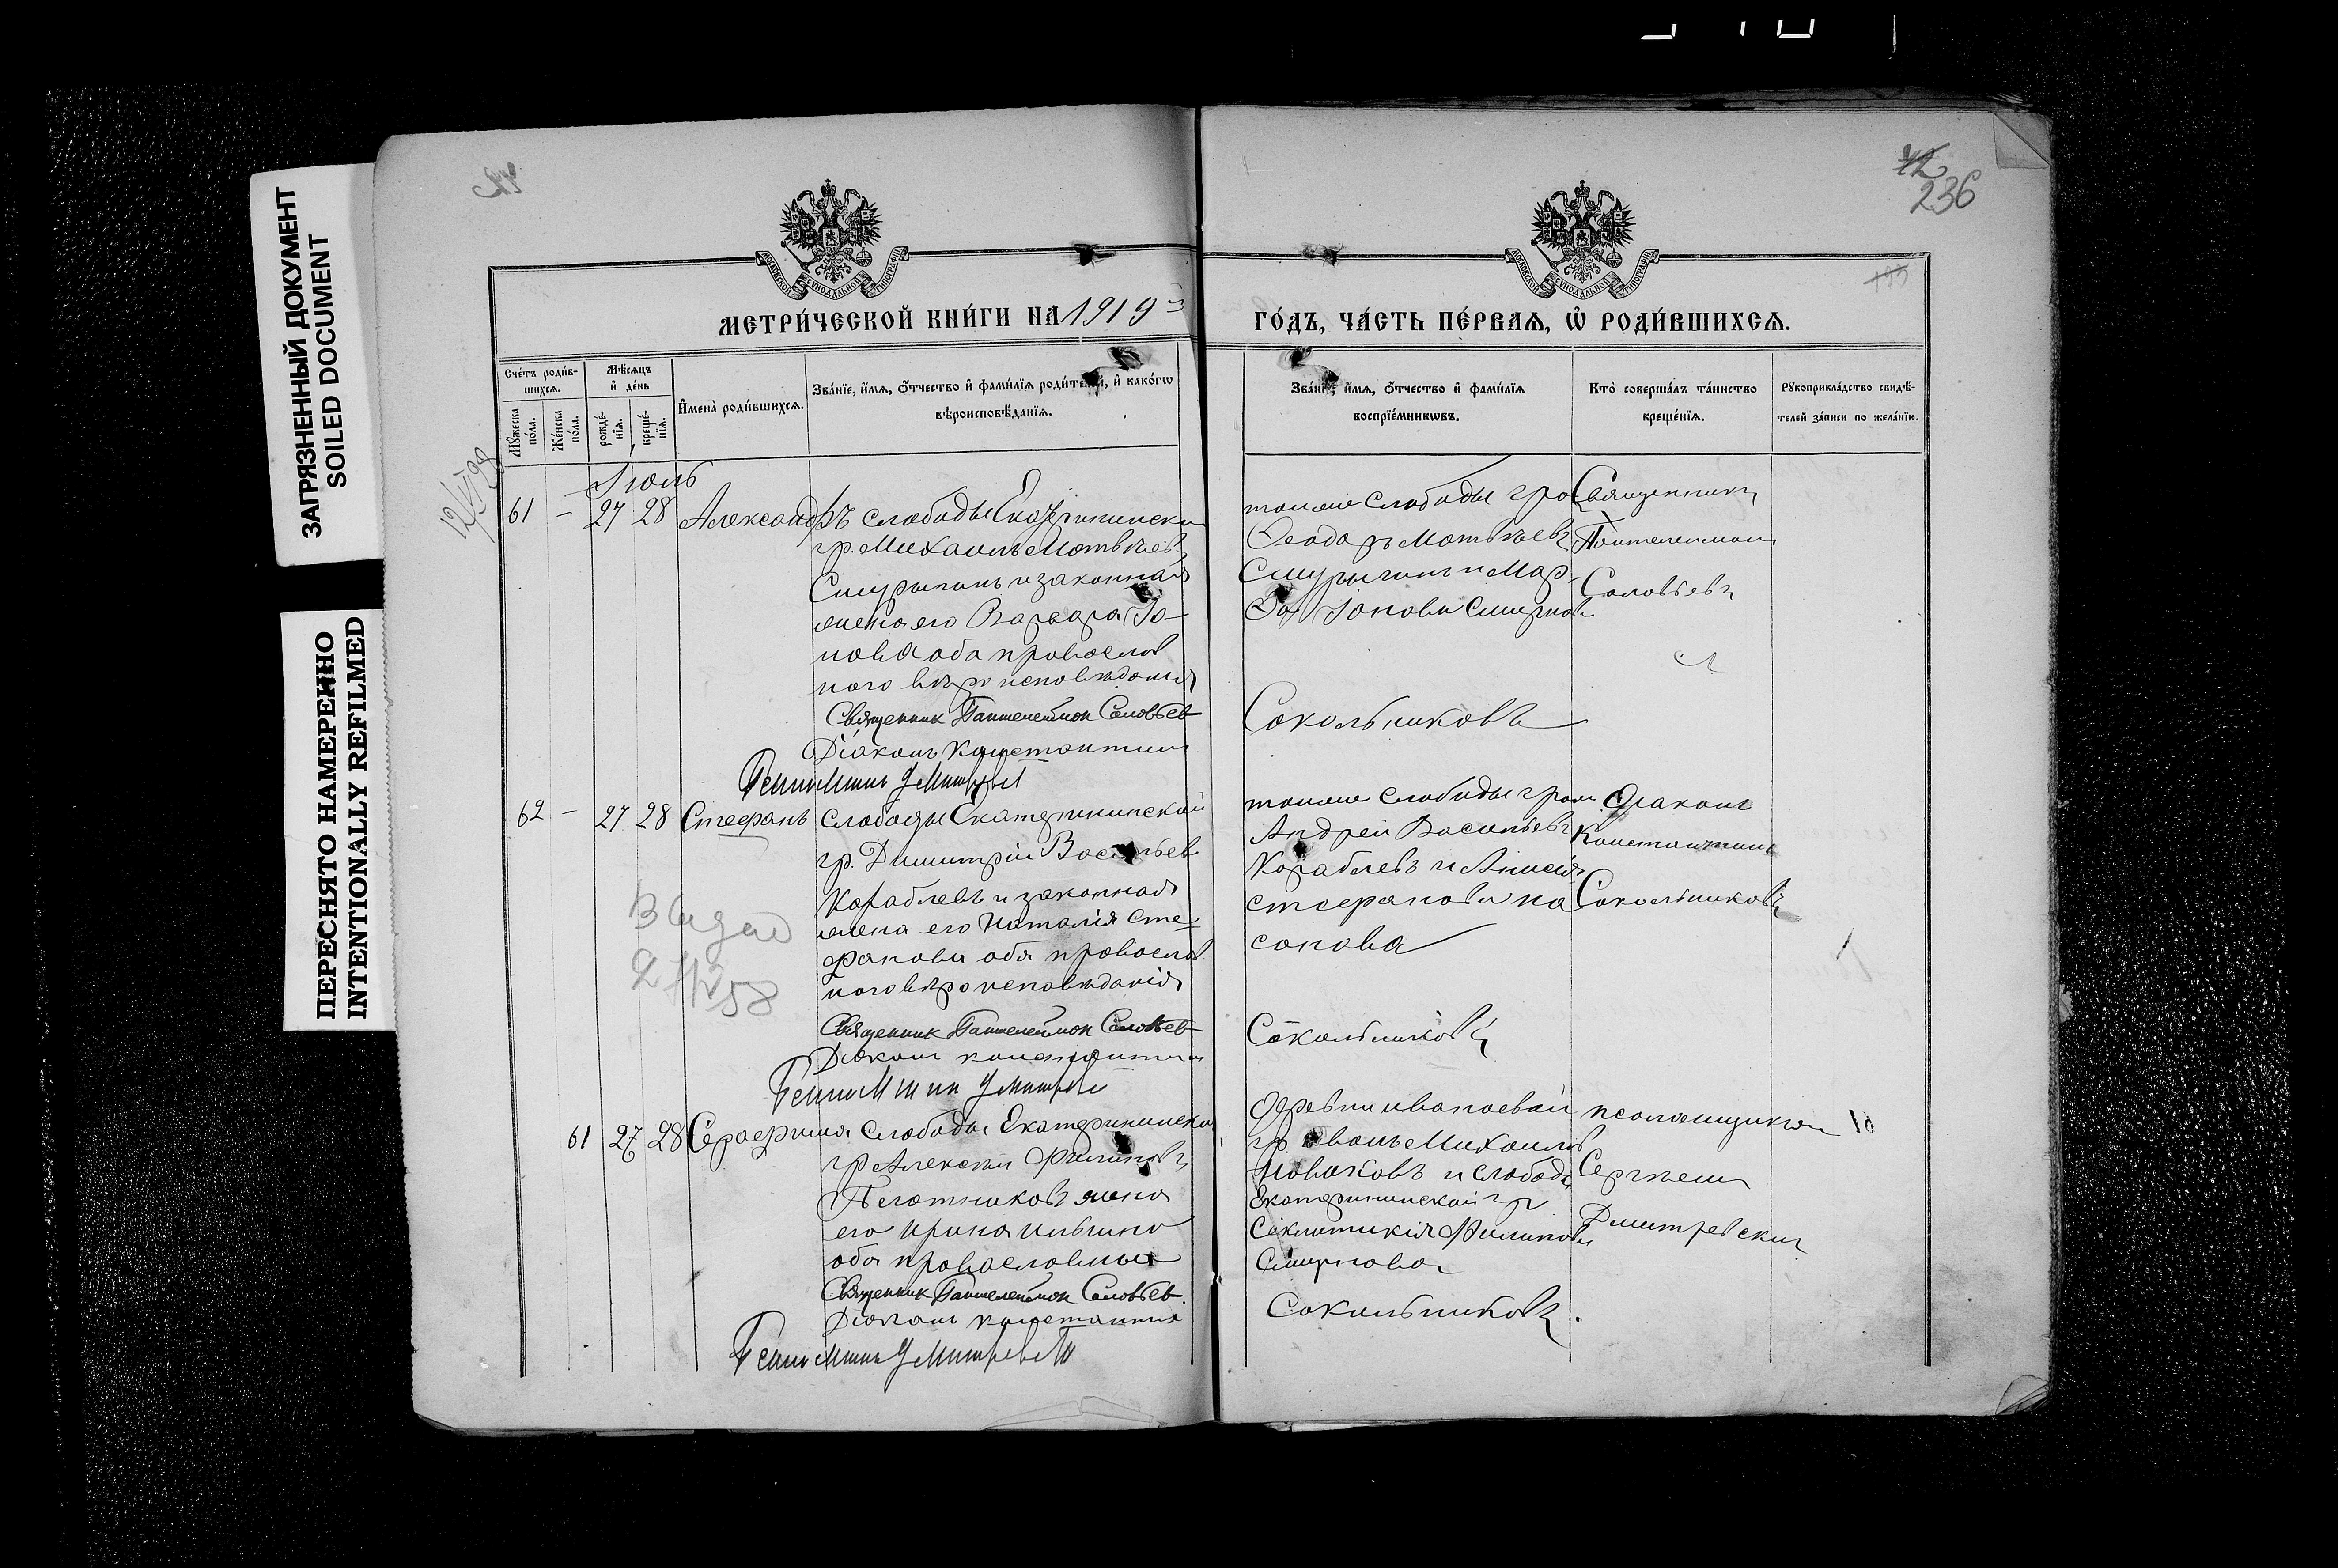 ЗАГРЯЗНЕННЫЙ ДОКУМЕНТ
SOILED DOCUMENT
ПЕРЕСНЯТО НАМЕРЕННО
INTENTIONALLY REFILMED
236
МЕТРИ́ЧЕСКОЙ КНИ́ГИ НА 1919
ГО́ДЪ, ЧА́СТЬ ПЕ́РВАЯ, Ѡ РОДИ́ВШИХСЯ.
МОСКОВСКОЙ СѴНОДАЛЬНОЙ ТИПОГРАФІИ
МОСКОВСКОЙ СѴНОДАЛЬНОЙ ТИПОГРАФІИ
Сче́тъ роди́вшихся.
Мꙋ́жеска по́ла.
Же́нска по́ла.
Мѣ́сяцъ и҆ де́нь
рожде́нїя.
креще́нїя.
И҆мена̀ роди́вшихся.
Зва́нїе, и҆́мя, ѻ҆́тчество и҆ фами́лїя роди́телей, и҆ како́гѡ
вѣроисповѣ́данїя.
Зва́нїе, и҆́мя, ѻ҆́тчество и҆ фами́лїя
воспрїе́мникѡвъ.
Кто̀ соверша́лъ та́инство
креще́нїя.
Рꙋкоприкла́дство свидѣ́-
телей за́писи по жела́нїю.
Іюль
61 – 27 28 Александръ слободы Екатрининской
гр. Михаилъ Матвѣевъ
Смурыгинъ и законная
жена его Варвара Іо-
нова оба православ
ного вѣроисповѣдания
Священник Пантелеймон Соловьев
Діаконъ Константин
тойже слободы гра
Феодоръ Матвѣевъ
Смурыгинъ и Мар-
фа Іонова Смирнов
Сокольниковъ
Священникъ
Пантелеимонъ
Соловьевъ
62 – 27 28 Стефанъ слободы Екатерининской
гр. Димитрій Васильев
Кораблевъ и законная
жена его Наталія Сте-
фанова оба православ
ного вѣроисповѣданія
Священник Пантелеймон Соловьев
Діаконъ Константинъ
тойже слободы граж
Андрей Васильевъ
Кораблевъ и Анисія
Стефанова
Сокольниковъ
Діаконъ
Константинъ
Сокольниковъ
Выдан
58
61 27 28 Серафима слободы Екатерининской
гр Алексѣй Филиповъ
Плотниковъ жена
его Ирина Ильина
оба православные
Священник Пантелеймон Соловьев
Діаконъ Константин
деревни Ивановой
гр Иванъ Михаилов
Новиковъ и слободы
Екатерининской гр
Секлитикія Филипова
Смирнова
Сокольниковъ.
псаломщикъ
Сергѣй
Дмитревский